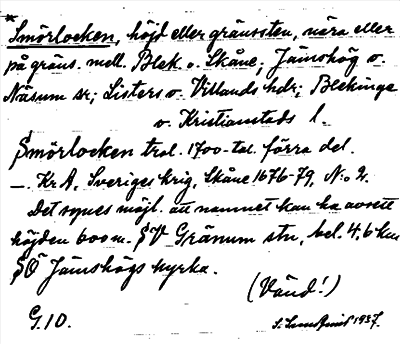 *Smörlocken, höjd eller gränssten, nära eller
på gräns. mell. Blek. o. Skåne; Jämshög o.
Näsum sn; Listers o. Villands hdr; Blekinge
o. Kristianstads l.
Smörlocken trol. 1700-tal. förra del.
—. Kr A, Sveriges krig, Skåne 1676-79, N:o 2.
Det synes möjl. att namnet kan ha avsett
höjden 600 m. SV Gränum stn, bel. 4,6 km
SÖ Jämshögs kyrka.
(Vänd!)
G.10.
1937.